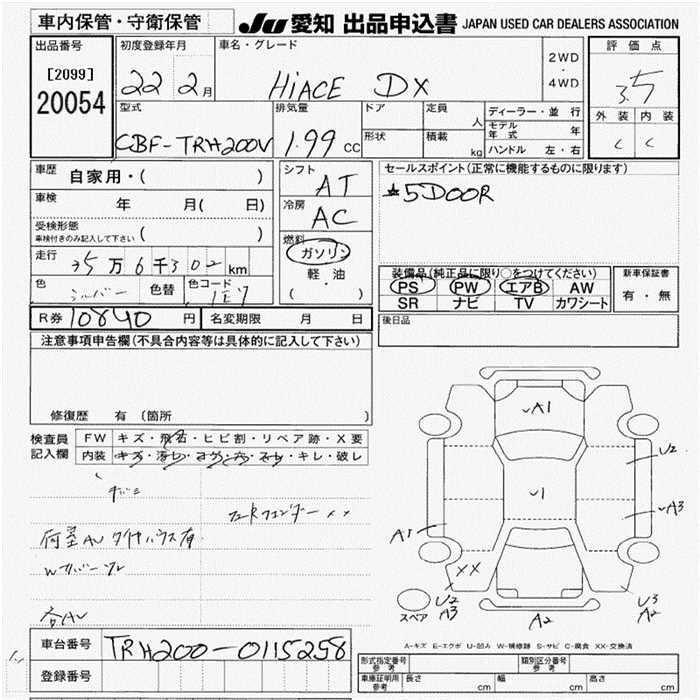 車内保管・守衛保管
JU 愛知 出品申込書 JAPAN USED CAR DEALERS ASSOCIATION
出品番号
[2099]
20054
初度登録年月
22 2月
車名・グレード
HiACE DX
2WD
・
4WD
評価点
3.5
外装 内装
C C
型式
CBF-TRH200V
排気量
1.99 CC
ドア
形状
定員 人
積載 kg
ディーラー・並行
モデル年式 年
ハンドル 左・右
車歴 自家用・( )
車検 年 月( 日)
受検形態
車検付きのみ記入して下さい ( )
走行 35万6千302km
色 シルバー 色替 色コード 1E7
シフト
AT
冷房
AC
燃料
ガソリン
軽・油
( )
セールスポイント(正常に機能するものに限ります)
5DOOR
装備品(純正品に限り○をつけてください)
PS PW エアB AW
SR ナビ TV カワシート
新車保証書
有・無
後日品
R券 10840円 名変期限 月 日
注意事項申告欄(不具合内容等は具体的に記入して下さい)
修復歴 有(箇所 )
検査員
記入欄
FW キズ・飛石・ヒビ割・リペア跡・X要
内装 キズ・汚レ・コゲ・穴・スレ・キレ・破レ
荷室AV タイヤハウス有
XX
A1
U2
1
A3
A1
XX
U2
A3
A2
U3
A2
スペア
A-キズ E-エクボ U-凹み W-補修跡 S-サビ C-腐食 XX-交換済
車台番号 TRH200-0115258
登録番号
形式指定番号
参考
類別区分番号
参考
車庫証明用
参考
長さ cm 幅 cm 高さ cm